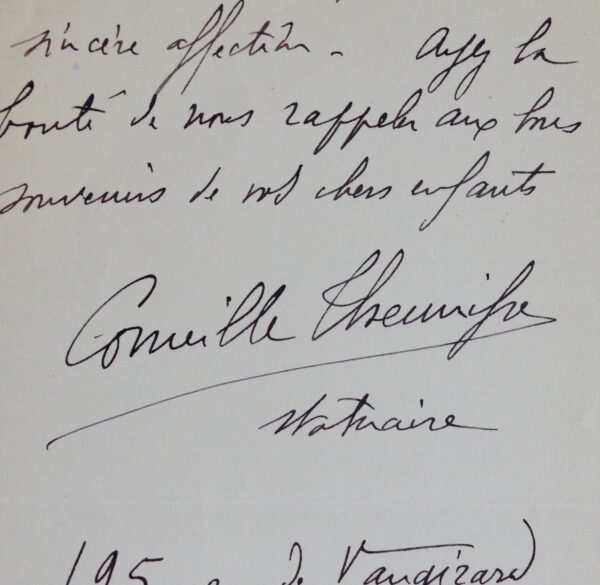 sincère affection - Ayez la
bonté de nous rappeler aux bons
souvenirs de vos chers enfants
Corneille Theunissen
statuaire
195 r de Vaugirard